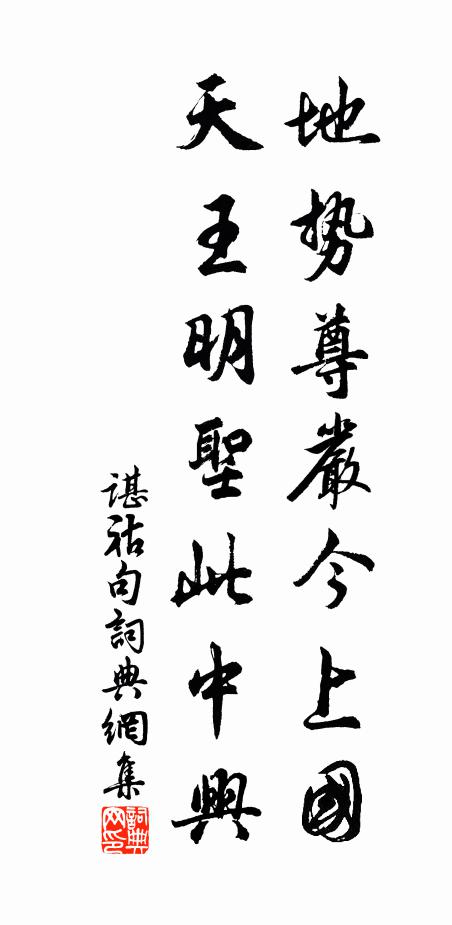 地势尊嚴今上國
天王明聖此中興
諶祜句詞典網集
詞典网印